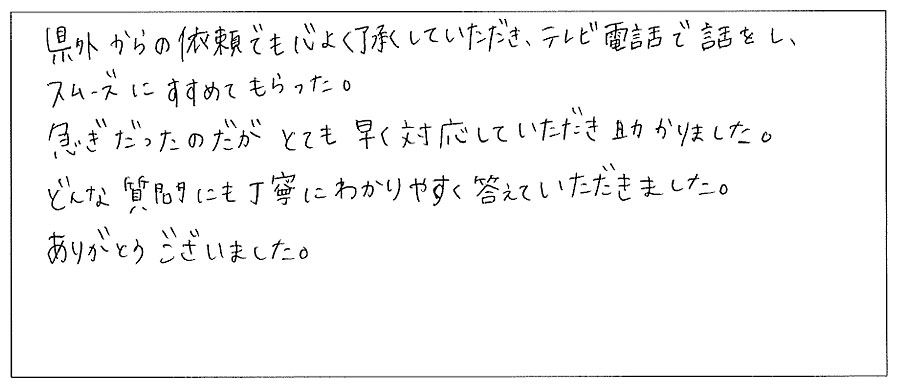 県外からの依頼でも心よく了承していただき、テレビ電話で話をし、
スムーズにすすめてもらった。
急ぎだったのだが とても早く対応していただき助かりました。
どんな質問にも丁寧にわかりやすく答えていただきました。
ありがとうございました。